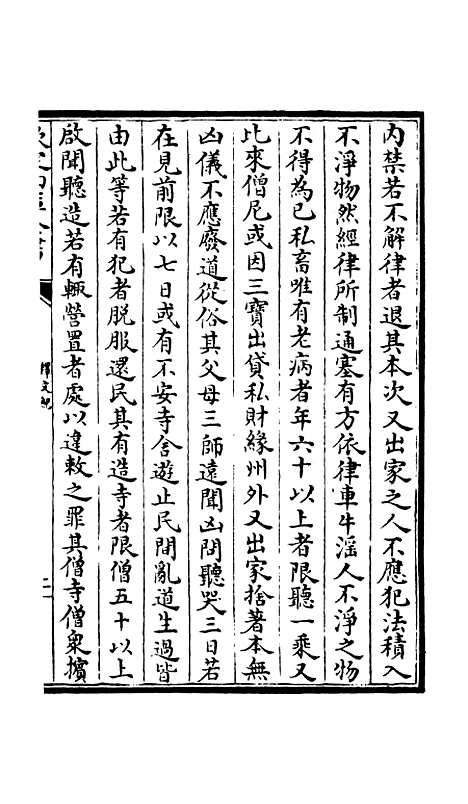 内禁若不解律者退其本次又出家之人不應犯法積入
不淨物然經律所制通塞有方依律車牛淫人不淨之物
不得為己私畜唯有老病者年六十以上者限聽一乘又
比來僧尼或因三寶出貸私財緣州外又出家捨著本無
凶儀不應廢道從俗其父母三師遠聞凶問聽哭三日若
在見前限以七日或有不安寺舍遊止民間亂道生過皆
由此等若有犯者脱服還民其有造寺者限僧五十以上
啟聞聽造若有輒營置者處以違敕之罪其僧寺僧衆擯
釋文紀